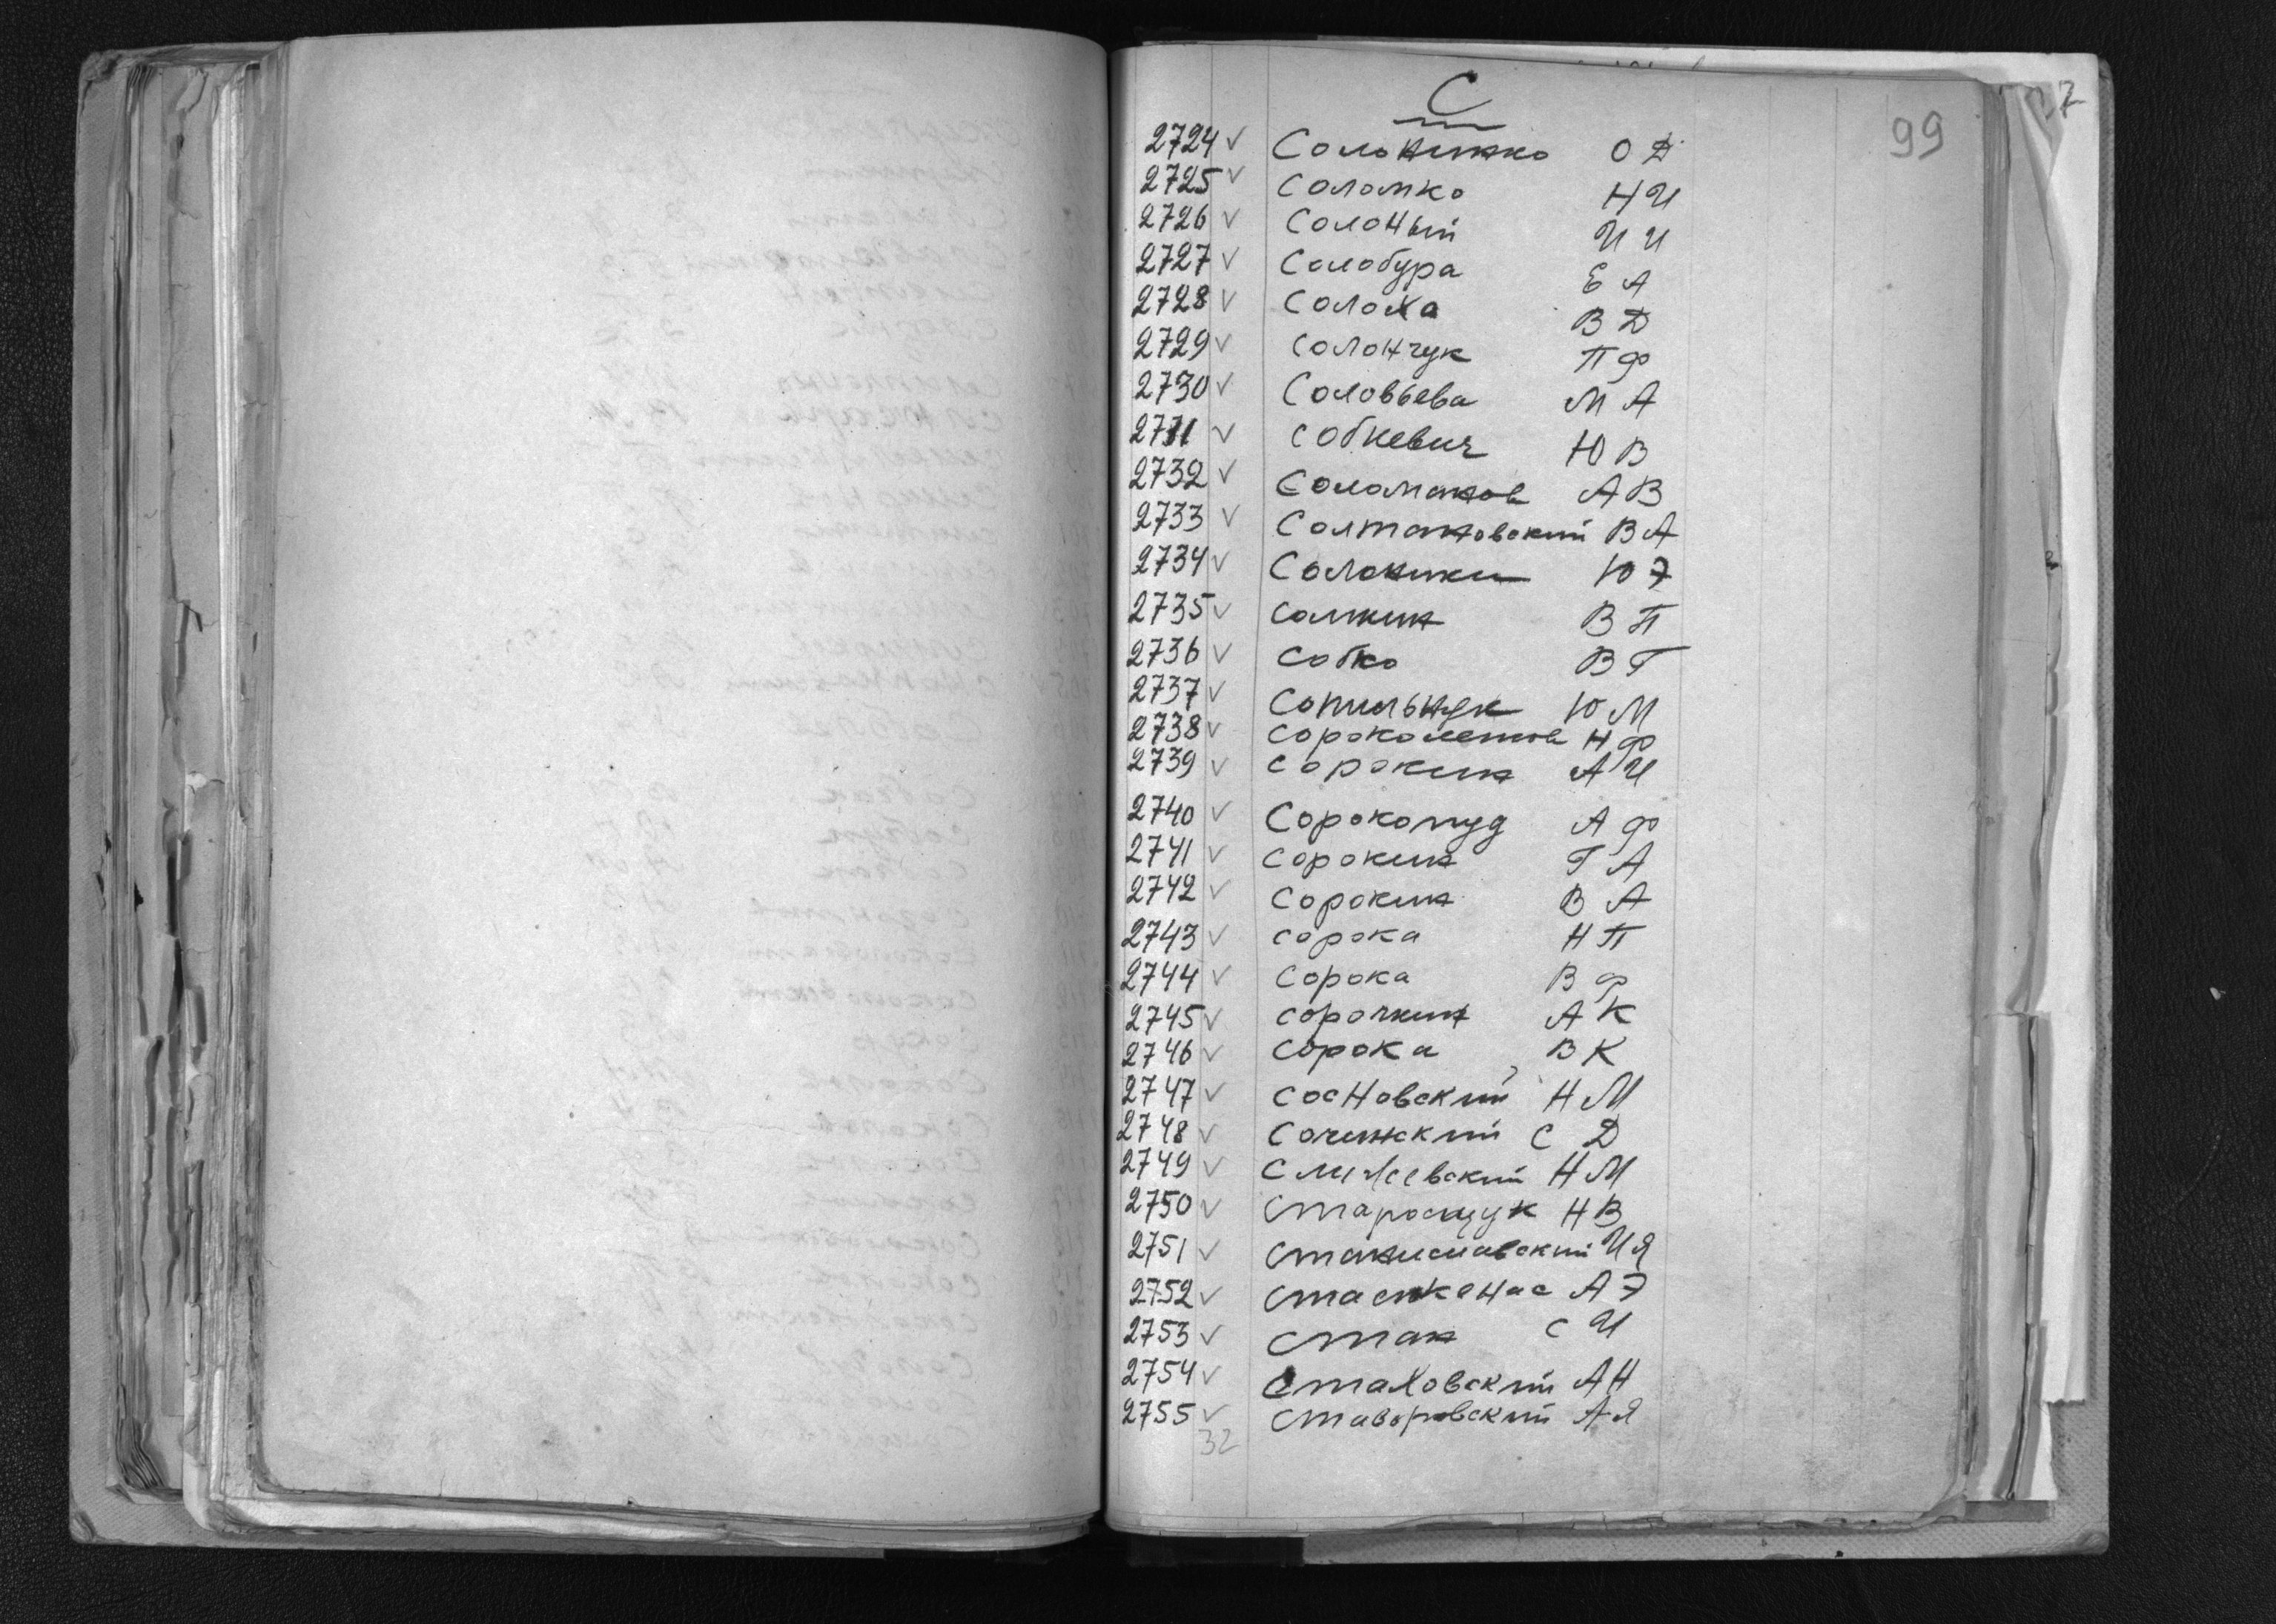 С
99
2724 ✓ Солонинко О Д
2725 ✓ Соломко Н И
2726 ✓ Солоный И И
2727 ✓ Солобура Е А
2728 ✓ Солоха В Д
2729 ✓ Солончук П Ф
2730 ✓ Соловьева М А
2731 ✓ Собкевич Ю В
2732 ✓ Соломаков А В
2733 ✓ Солтановский В А
2734 ✓ Ю Э
2735 ✓ В П
2736 ✓ Собко В Г
2737 ✓ Сопильнук Ю М
2738 ✓ Сороколетов Н Ф
2739 ✓ Сорокин А И
2740 ✓ Сорокопуд А Ф
2741 ✓ Сорокин Г А
2742 ✓ Сорокин В А
2743 ✓ Сорока Н П
2744 ✓ Сорока В Ф
2745 ✓ Сорочкин А К
2746 ✓ Сорока В К
2747 ✓ Сосновский Н М
2748 ✓ Сочинский С Д
2749 ✓ Слижевский Н М
2750 ✓ Старощук Н В
2751 ✓ Станиславский И Я
2752 ✓ А Э
2753 ✓ Стан С И
2754 ✓ Стаховский А Н
2755 ✓ Ставоровский А Я
32